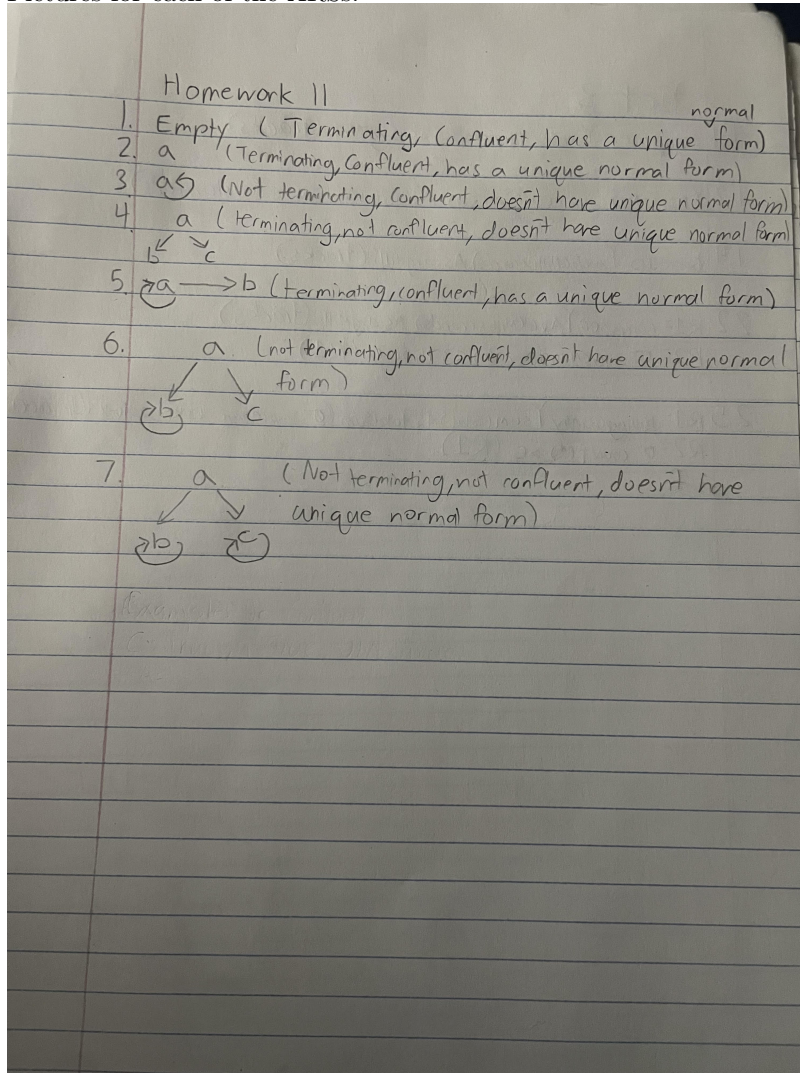 Pictures for each of the ARSs.
Homework 11
normal
1. Empty (Terminating, Confluent, has a unique form)
2. a (Terminating, Confluent, has a unique normal form)
3. a (Not terminating, Confluent, doesn't have unique normal form)
4. a (terminating, not confluent, doesn't have unique normal form)
b c
5. a → b (terminating, confluent, has a unique normal form)
6. a (not terminating, not confluent, doesn't have unique normal
form)
b c
7. a (Not terminating, not confluent, doesn't have
unique normal form)
b c